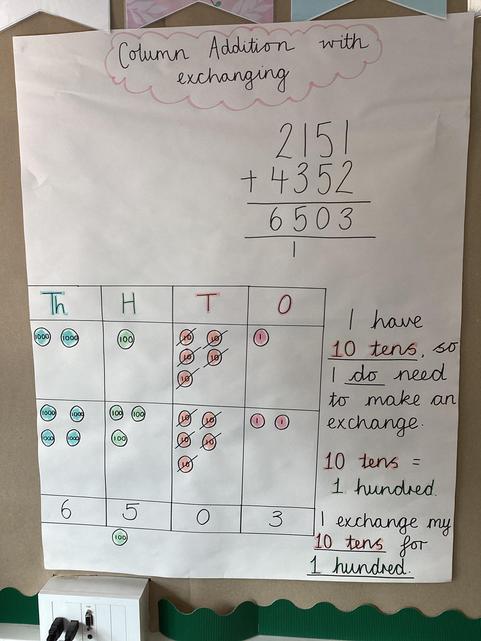 Column Addition with
exchanging
2151
+ 4352
6503
1
Th H T O
1000 1000 100 10 10 1
10 10
10
1000 1000 100 100 10 10 1 1
1000 1000 100 10 10
10
6 5 0 3
100
I have
10 tens, so
I do need
to make an
exchange.
10 tens =
1 hundred.
I exchange my
10 tens for
1 hundred.